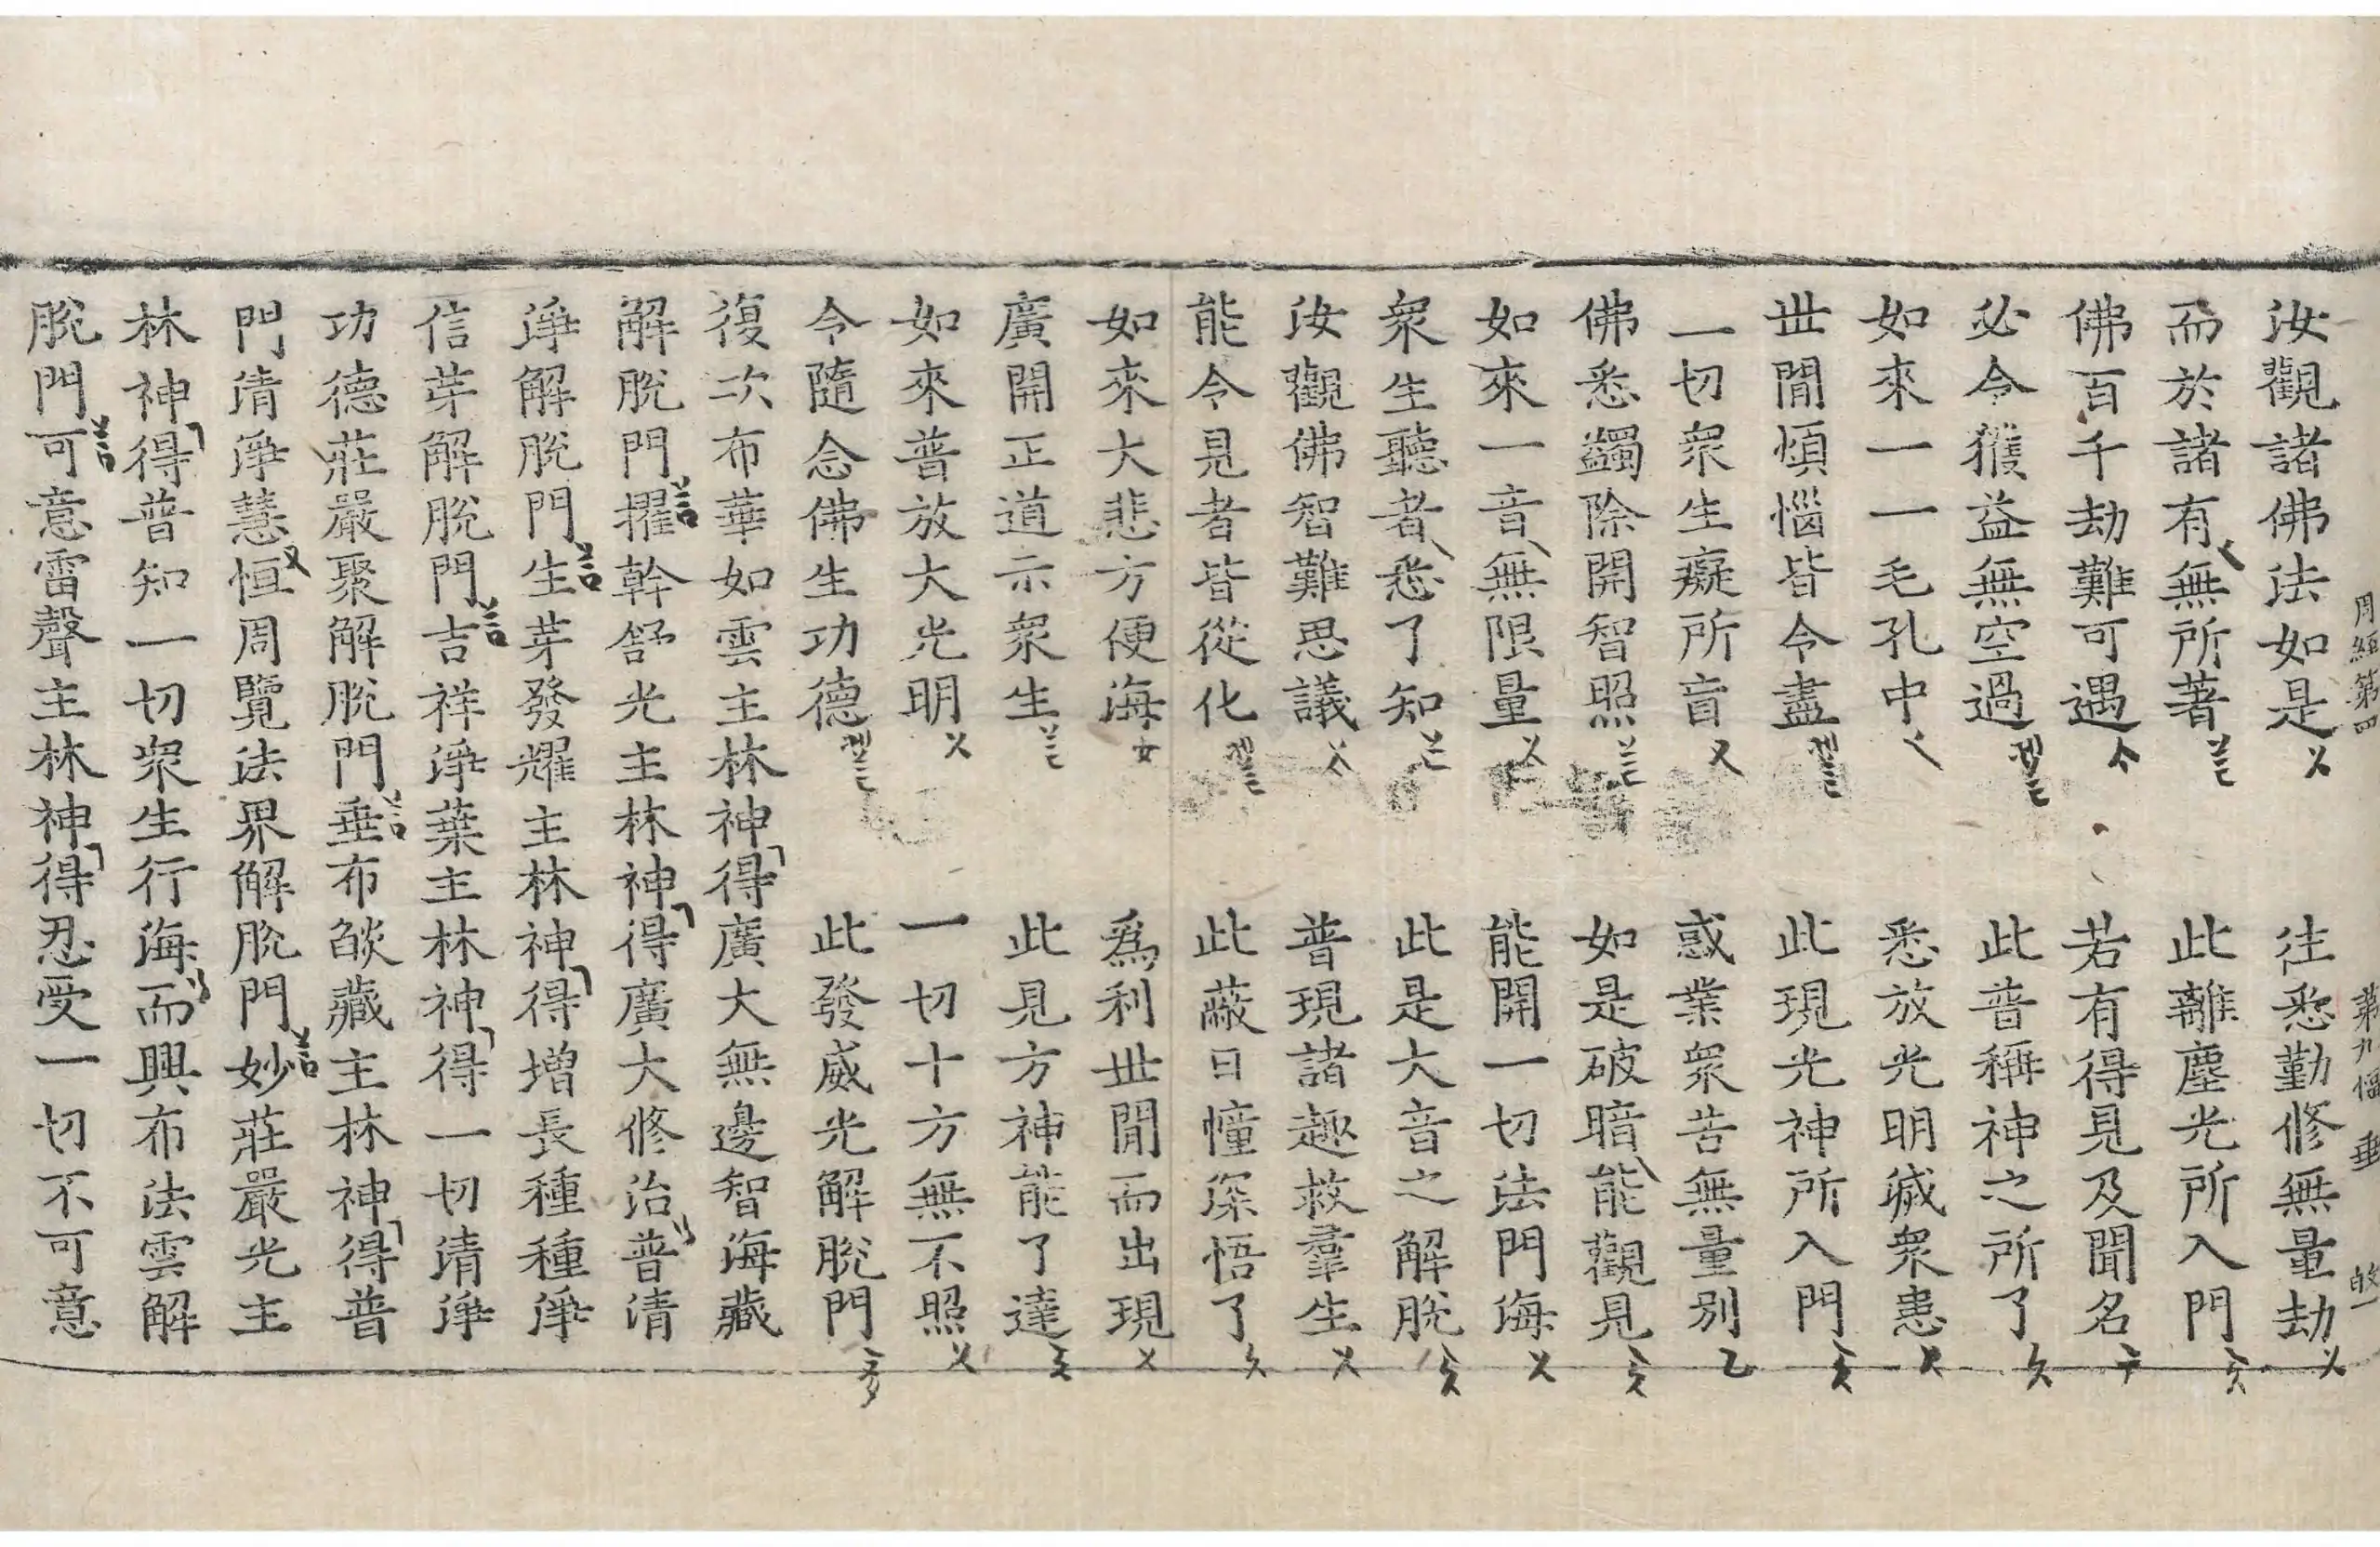 周經第四 第九幅 垂
汝觀諸佛法如是 往悉勤修無量劫
而於諸有無所著 此離塵光所入門
佛百千劫難可遇 若有得見及聞名
必令獲益無空過 此普稱神之所了
如來一一毛孔中 悉放光明滅衆患
世間煩惱皆令盡 此現光神所入門
一切衆生癡所盲 惑業衆苦無量別
佛悉蠲除開智照 如是破暗能觀見
如來一音無限量 能開一切法門海
衆生聽者悉了知 此是大音之解脫
汝觀佛智難思議 普現諸趣救羣生
能令見者皆從化 此蔽日幢深悟了
如來大悲方便海 爲利世間而出現
廣開正道示衆生 此見方神能了達
如來普放大光明 一切十方無不照
令隨念佛生功德 此發威光解脫門
復次布華如雲主林神得廣大無邊智海藏
解脫門擢幹舒光主林神得廣大修治普清
淨解脫門生芽發耀主林神得增長種種淨
信芽解脫門吉祥淨葉主林神得一切清淨
功德莊嚴聚解脫門垂布𦦨藏主林神得普
門清淨慧恒周覽法界解脫門妙莊嚴光主
林神得普知一切衆生行海而興布法雲解
脫門可意雷聲主林神得忍受一切不可意